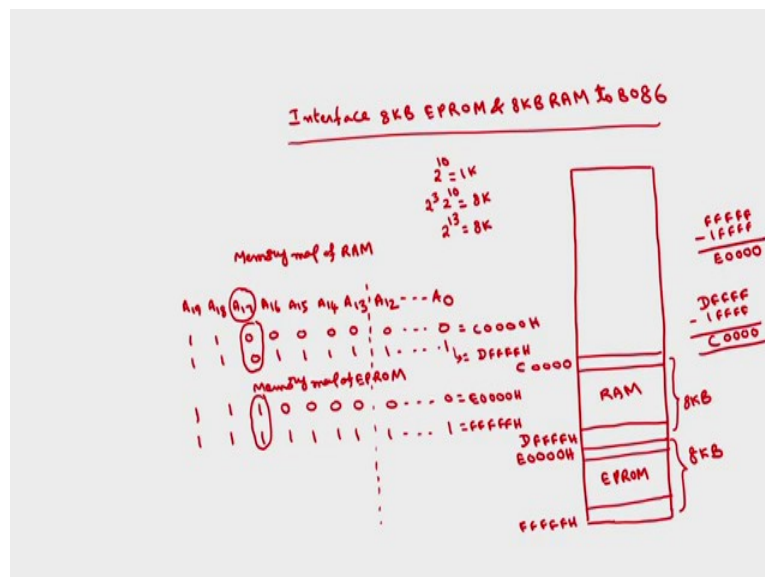 Interface 8KB EPROM & 8KB RAM to 8086
2^10 = 1K
2^3 2^10 = 8K
2^13 = 8K
Memory map of RAM
A19 A18 A17 A16 A15 A14 A13 A12 --- A0
1 1 0 0 0 0 0 0 --- 0 = C0000H
1 1 0 1 1 1 1 1 --- 1 = DFFFFH
Memory map of EPROM
1 1 1 0 0 0 0 0 --- 0 = E0000H
1 1 1 1 1 1 1 1 --- 1 = FFFFFH
C0000
RAM
8KB
DFFFFH
E0000H
EPROM
8KB
FFFFFH
FFFFF
- 1FFFF
E0000
DFFFF
- 1FFFF
C0000